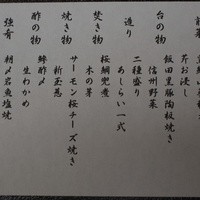 芹お浸し
台の物
飯田黒豚陶板焼き
信州野菜
造り
二種盛り
あしらい一式
焚き物
桜鯛兜煮
木の芽
焼き物
サーモン桜チーズ焼き
新玉葱
酢の物
鰺酢〆
生わかめ
強肴
朝〆岩魚塩焼